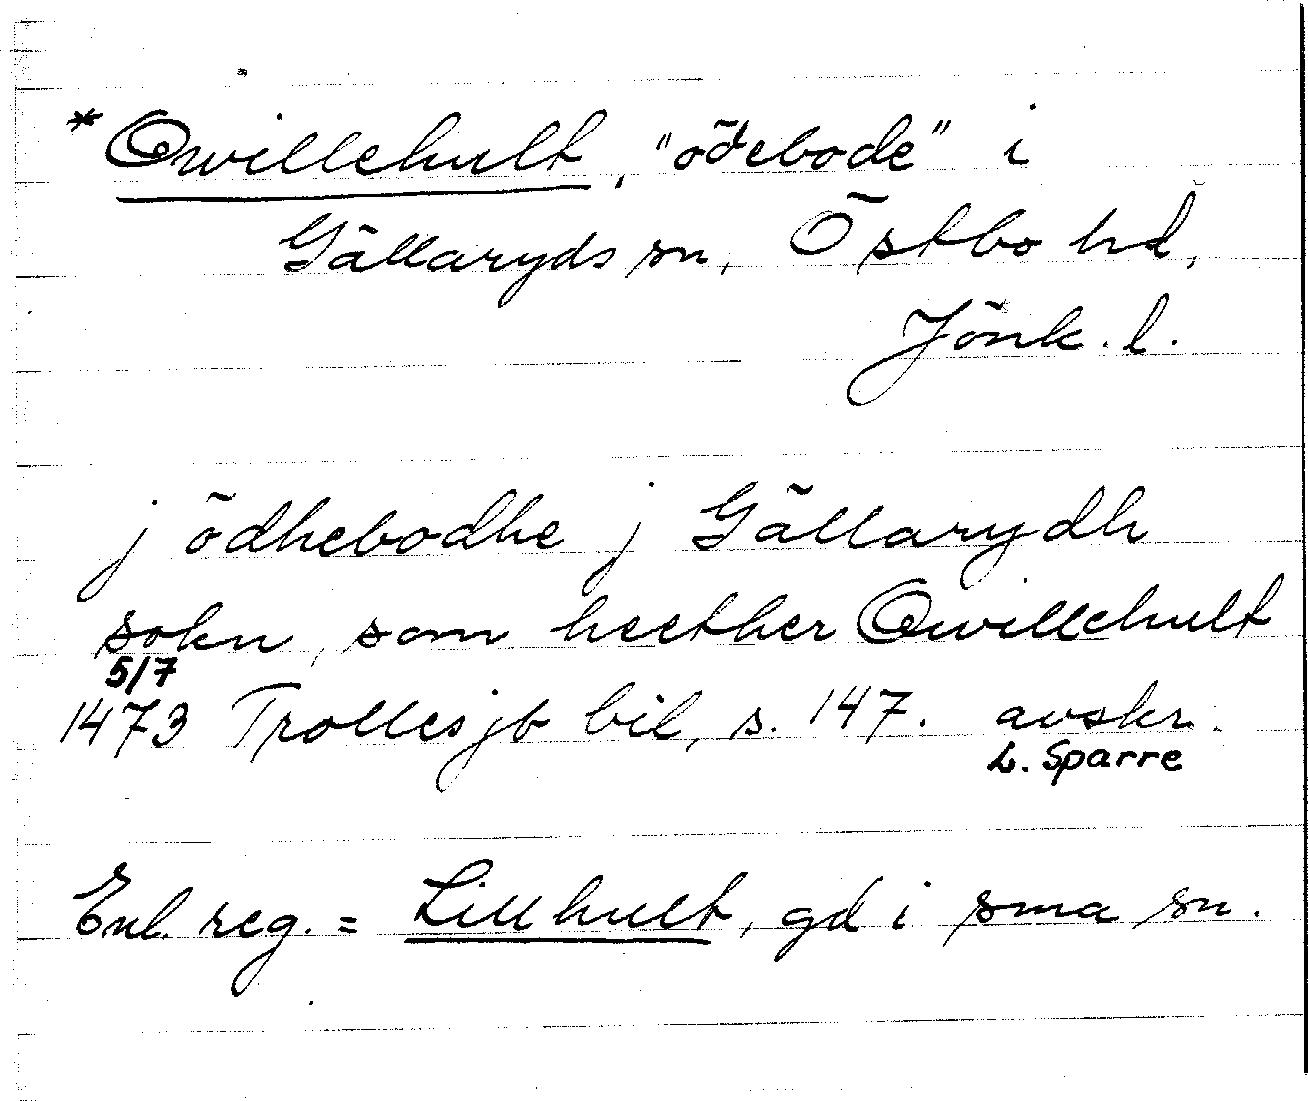 * Qwillehult, "ödebode" i
Gällaryds sn, Östbo hd,
Jönk. l.
j ödhebodhe j Gällarydh
sokn, som heether Qwillehult
5/7
1473 Trollesjö bil, s. 147. avskr.
L. Sparre
Enl. reg. = Lillhult, gd i sma sn.